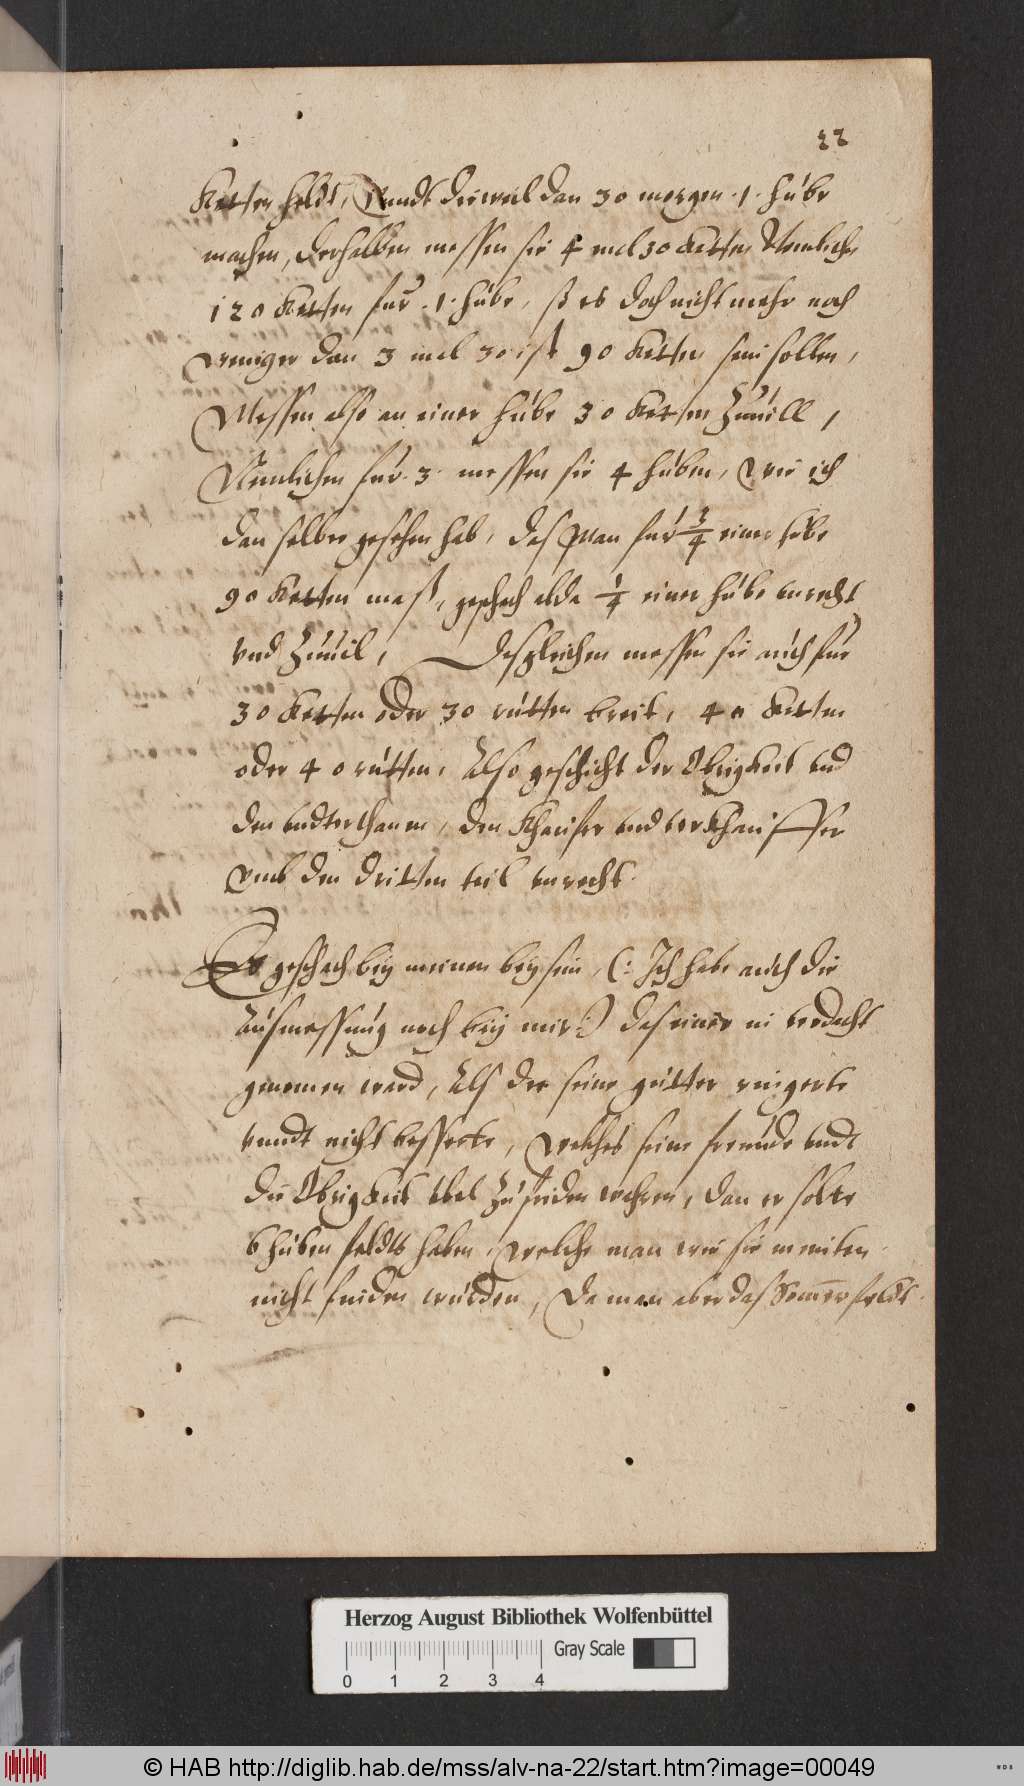 22
Ketten heldt, Vnndt dieweil dan 30 morgen .1. hube
machen, derhalben messen sie 4 mal 30 ketten Nemliche
120 ketten fur .1. hube, so es doch nicht mehr noch
weniger dan 3 mal 30 ist 90 ketten sein sollen,
Messen also an einer hube 30 ketten Zuuill,
Nemlichen fur .3. messen sie 4 huben, wie ich
dan selber gesehen hab, das man fur 3/4 einer hube
90 ketten maß, geschach alda 1/4 einer hube vnrecht
vnd Zuuil, Desgleichen messen sie auch fur
30 ketten oder 30 rutten breit, 40 ketten
oder 40 rutten, Also geschicht der Obrigkeit vnd
den vndterthanen, den Kheuffer vnd verkheuffer
vmb den dritten teil vnrecht.
Es geschach bey meinen beysein, (: Ich habe auch die
Ausmessung noch bey mir :) das einer in verdacht
genomen ward, Als der seine gütter ringerte
vnndt nicht besserte, welches seine freunde vndt
die Obrigkeit vbel Zufriden wahren, dan er solte
6 huben feldts haben, welche man wie sie meinten
nicht finden wurden, Da man aber das Sommerfeldt
Herzog August Bibliothek Wolfenbüttel
Gray Scale
0 1 2 3 4
© HAB http://diglib.hab.de/mss/alv-na-22/start.htm?image=00049